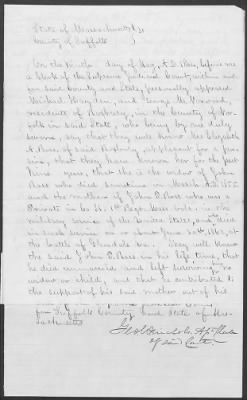 State of Massachusetts
County of Suffolk
On the day of May, A.D. before me
a Clerk of the Supreme Judicial Court within and
for said County and State, personally appeared
Michael and George
residents of Roxbury, in the County of Nor-
folk in said State, who being by me duly
sworn, say, that they well know Mrs Elizabeth
A. Rose, of said Roxbury applicant for a pen-
sion, that they have known her for the past
years, that she is the widow of John
Rose who died sometime in March A.D. 1855
and the mother of John P. Rose who was a
Private in Co. 1st Regt. Mass. Vols. in the
military service of the United States, and died
in such service on or about June 30th 1862, at
the battle of Glendale Va. They well knew
the said John P. Rose in his life time, that
he died unmarried and left surviving no
widow or child, and that he contributed to
the support of his said mother out of his
for Suffolk County said State of Mas-
sachusetts
Clerk
of said Court